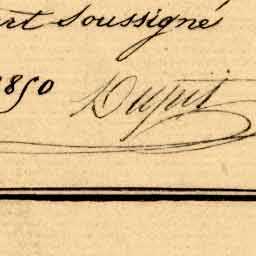 ert soussigné
1850
Dupui